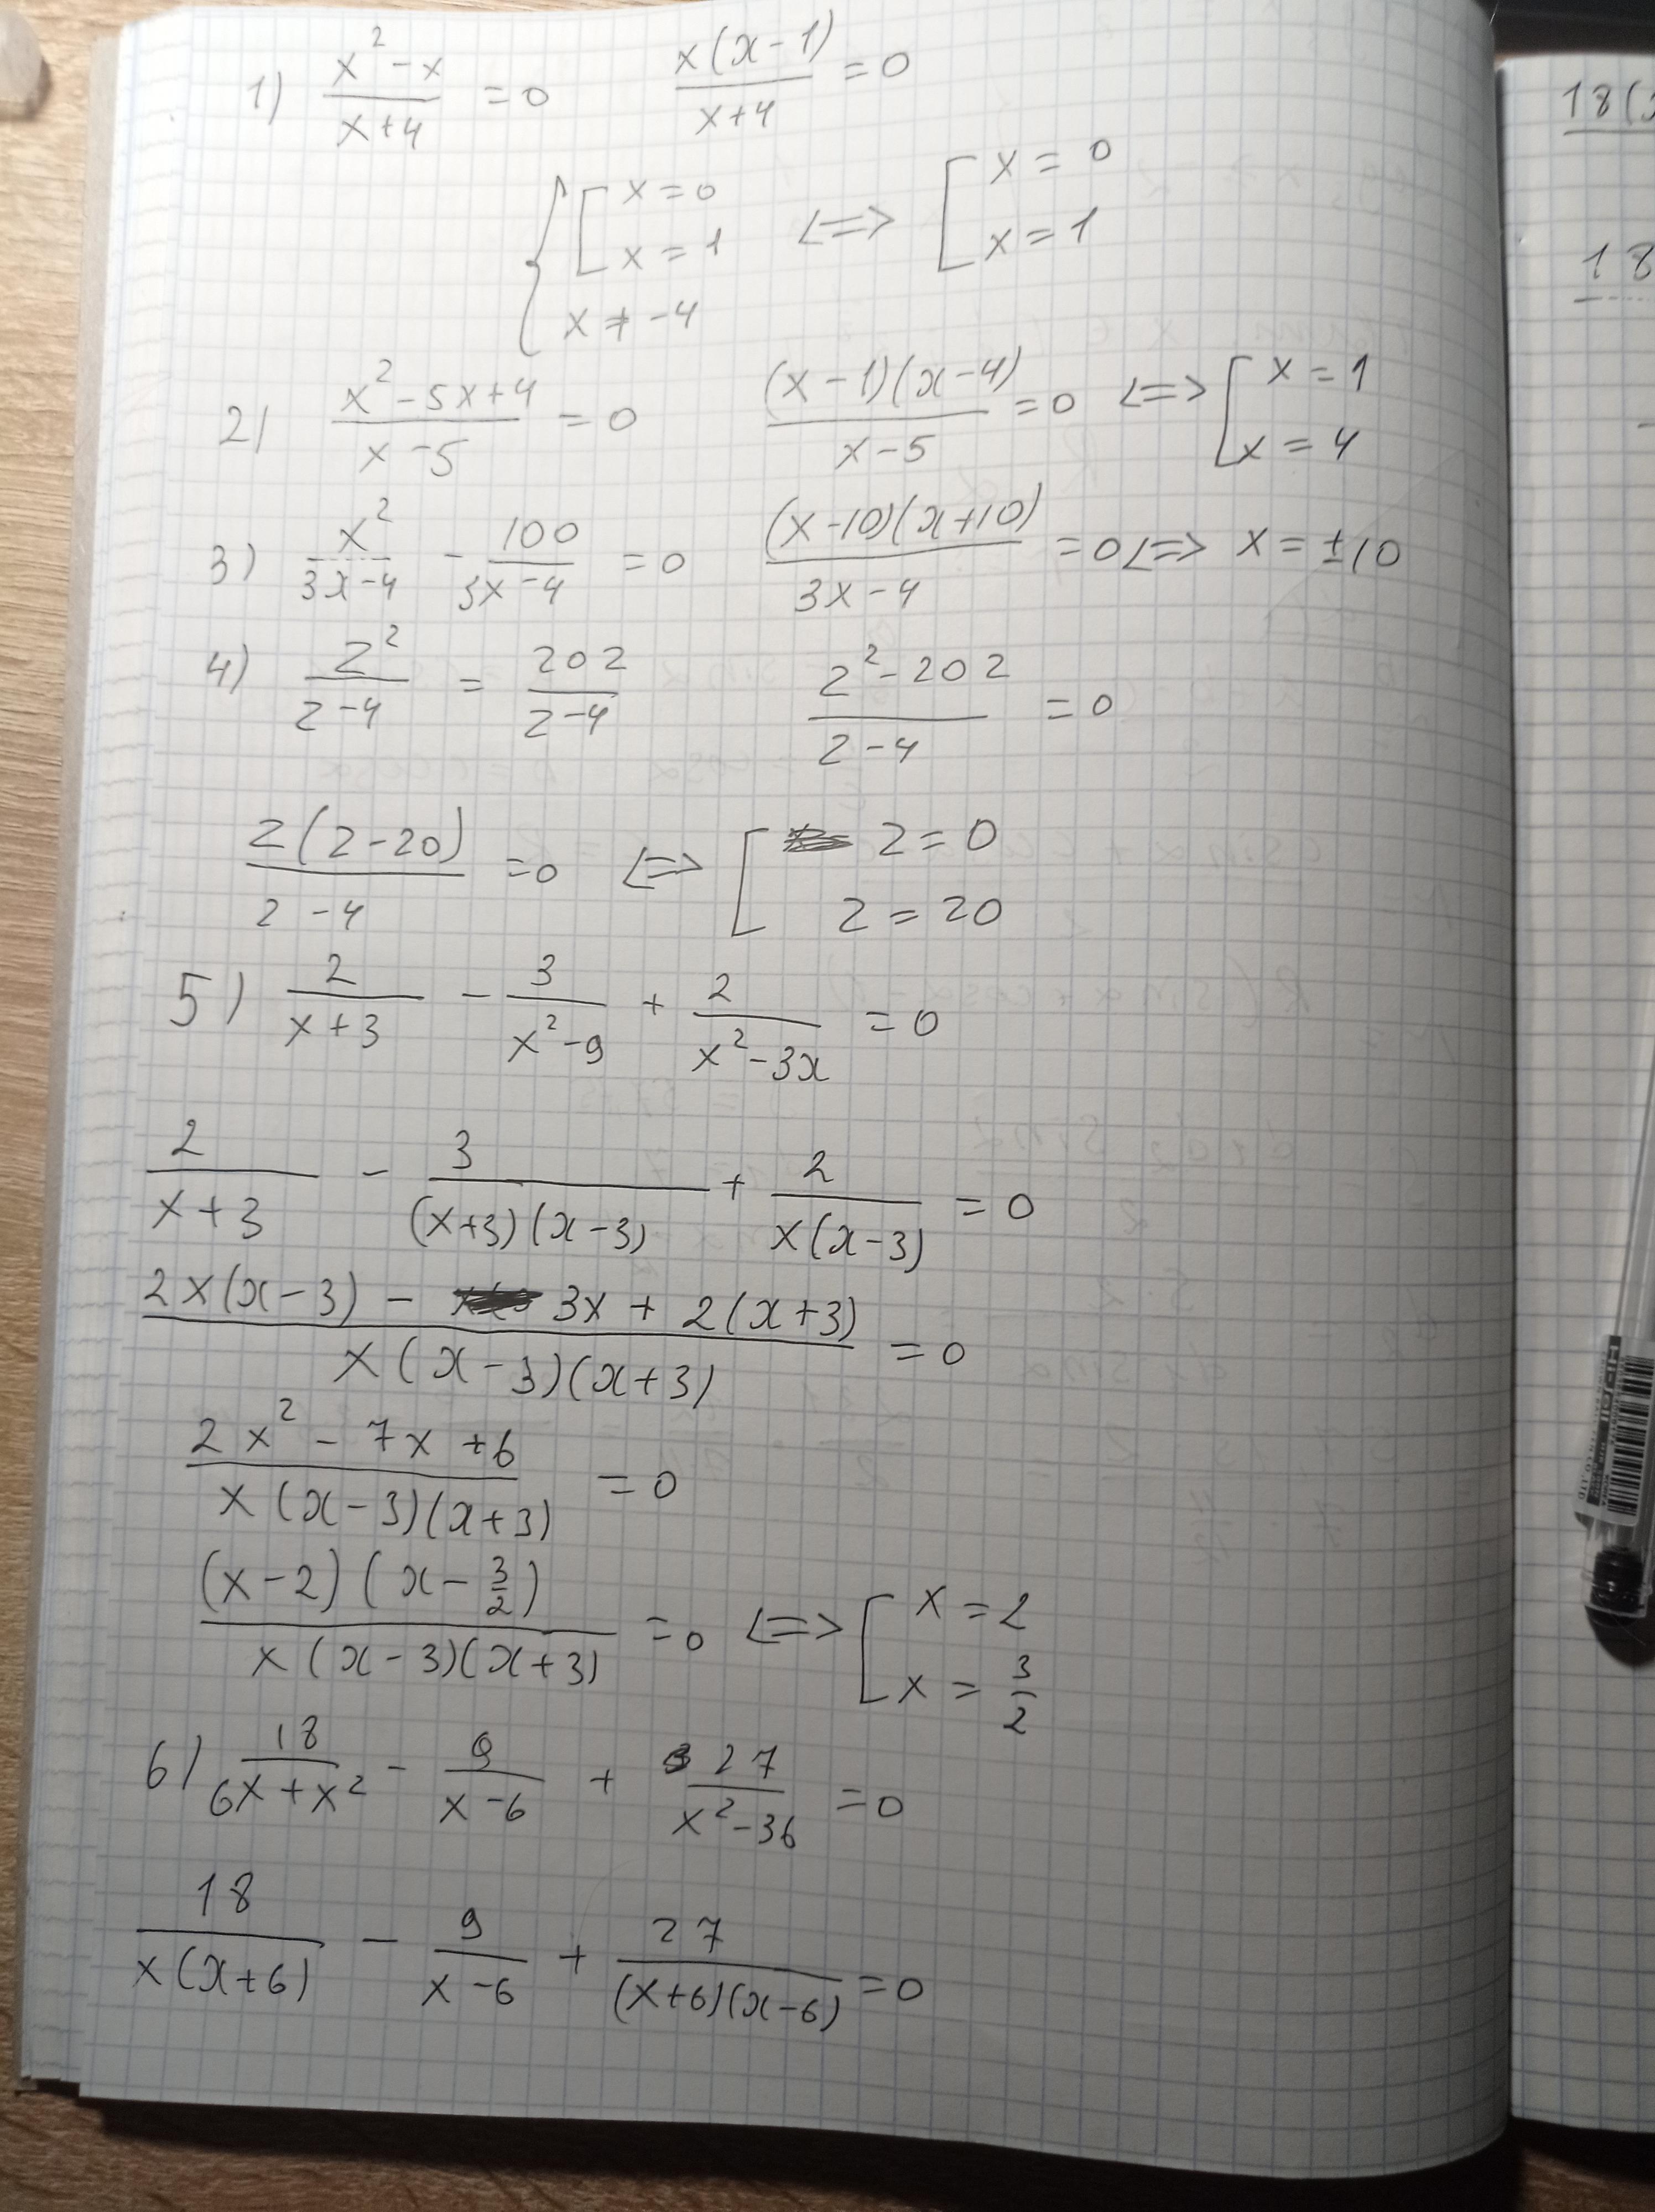 1) (x² - x)/(x+4) = 0   x(x-1)/(x+4) = 0
{ [ x = 0   <=>   [ x = 0
x = 1   x = 1
x ≠ -4
2) (x² - 5x + 4)/(x - 5) = 0   (x-1)(x-4)/(x-5) = 0 <=> [ x = 1
x = 4
3) x²/(3x-4) - 100/(3x-4) = 0   (x-10)(x+10)/(3x-4) = 0 <=> x = ±10
4) z²/(z-4) = 20z/(z-4)   (z² - 20z)/(z-4) = 0
z(z-20)/(z-4) = 0 <=> [ z = 0
z = 20
5) 2/(x+3) - 3/(x²-9) + 2/(x²-3x) = 0
2/(x+3) - 3/((x+3)(x-3)) + 2/(x(x-3)) = 0
(2x(x-3) - 3x + 2(x+3))/(x(x-3)(x+3)) = 0
(2x² - 7x + 6)/(x(x-3)(x+3)) = 0
(x-2)(x - 3/2)/(x(x-3)(x+3)) = 0 <=> [ x = 2
x = 3/2
6) 18/(6x+x²) - 9/(x-6) + 27/(x²-36) = 0
18/(x(x+6)) - 9/(x-6) + 27/((x+6)(x-6)) = 0
18(
18